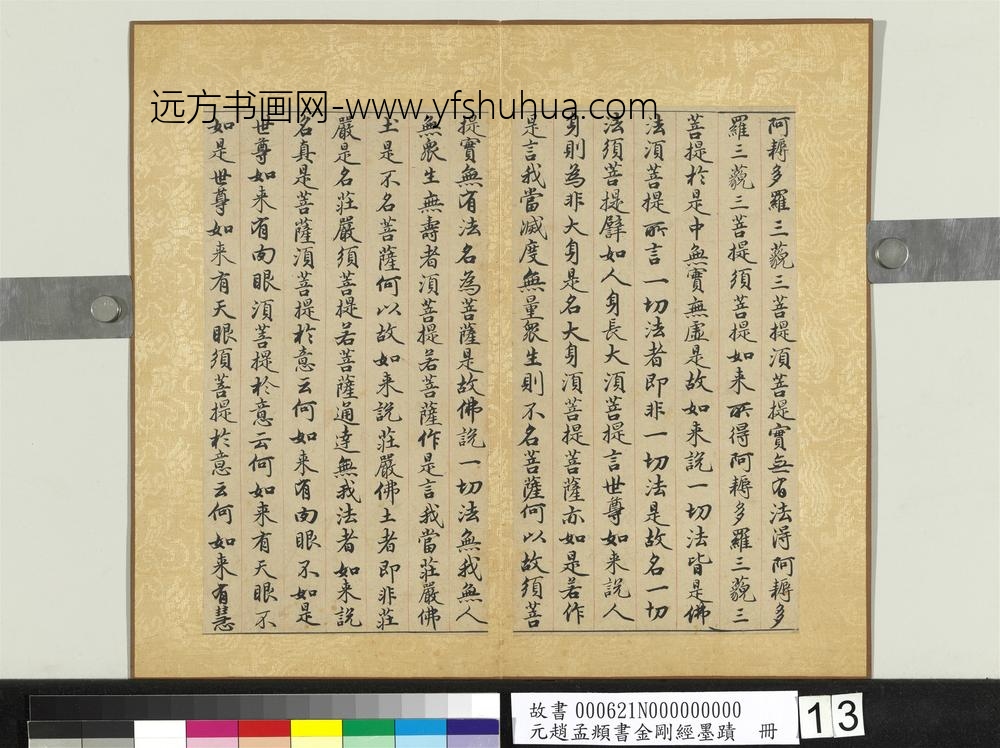 远方书画网-www.yfshuhua.com
阿耨多羅三藐三菩提湏菩提實无有法得阿耨多
羅三藐三菩提須菩提如来所得阿耨多羅三藐三
菩提於是中無實無虛是故如来說一切法皆是佛
法湏菩提所言一切法者即非一切法是故名一切
法須菩提譬如人身長大湏菩提言世尊如来說人
身則為非大身是名大身湏菩提菩薩亦如是若作
是言我當滅度無量眾生則不名菩薩何以故須菩
提實無有法名為菩薩是故佛說一切法無我無人
無眾生無壽者湏菩提若菩薩作是言我當莊嚴佛
土是不名菩薩何以故如来說莊嚴佛土者即非莊
嚴是名莊嚴須菩提若菩薩通達無我法者如来說
名真是菩薩湏菩提於意云何如来有肉眼不如是
世尊如来有肉眼湏菩提於意云何如来有天眼不
如是世尊如来有天眼須菩提於意云何如来有慧
故書 000621N000000000
元趙孟頫書金剛經墨蹟 冊
13